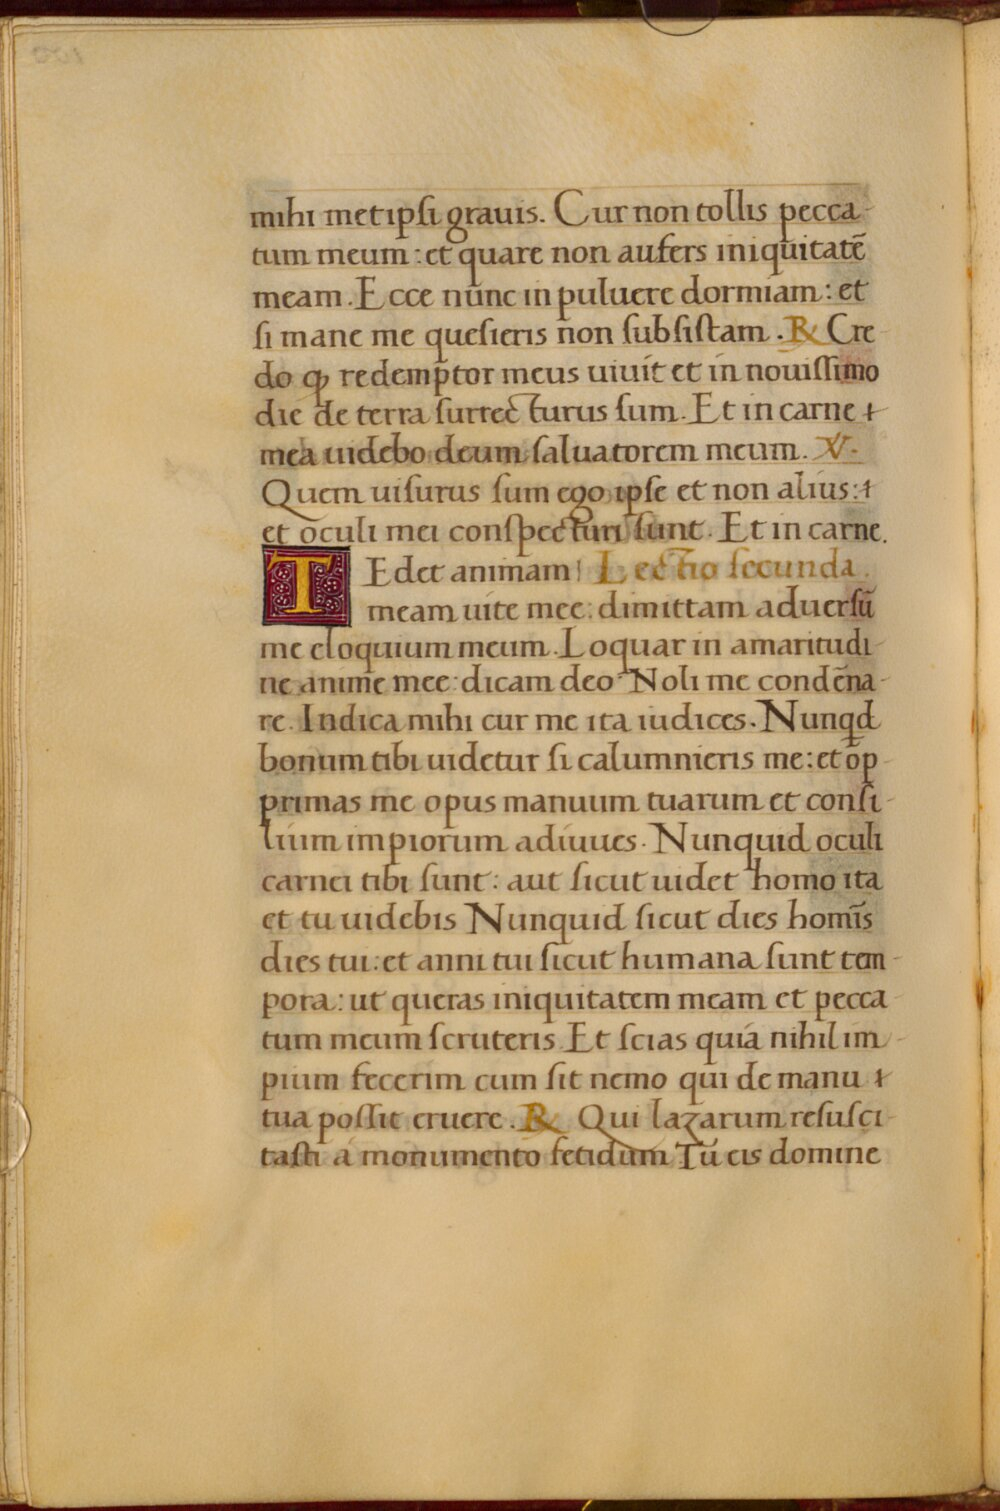 mihi metipsi grauis. Cur non tollis pecca-
tum meum: et quare non aufers iniquitatē
meam. Ecce nunc in puluere dormiam: et
si mane me quesieris non subsistam. ℟ Cre
do ꝙ redemptor meus uiuit et in nouissimo
die de terra surrecturus sum. Et in carne
mea uidebo deum saluatorem meum. ℣.
Quem uisurus sum ego ipse et non alius:
et oculi mei conspecturi sunt. Et in carne.
TEdet animam Lectio secunda.
meam uite mee: dimittam aduersū
me eloquium meum. Loquar in amaritudi-
ne anime mee: dicam deo Noli me condēna-
re. Indica mihi cur me ita iudices. Nunqd
bonum tibi uidetur si calumnieris me: et op-
primas me opus manuum tuarum et consi-
lium impiorum adiuues. Nunquid oculi
carnei tibi sunt: aut sicut uidet homo ita
et tu uidebis Nunquid sicut dies homīs
dies tui: et anni tui sicut humana sunt tem-
pora: ut queras iniquitatem meam et pecca-
tum meum scruteris. Et scias quia nihil im-
pium fecerim cum sit nemo qui de manu
tua possit eruere. ℟ Qui lazarum resusci-
tasti á monumento fetidum Tū eis domine